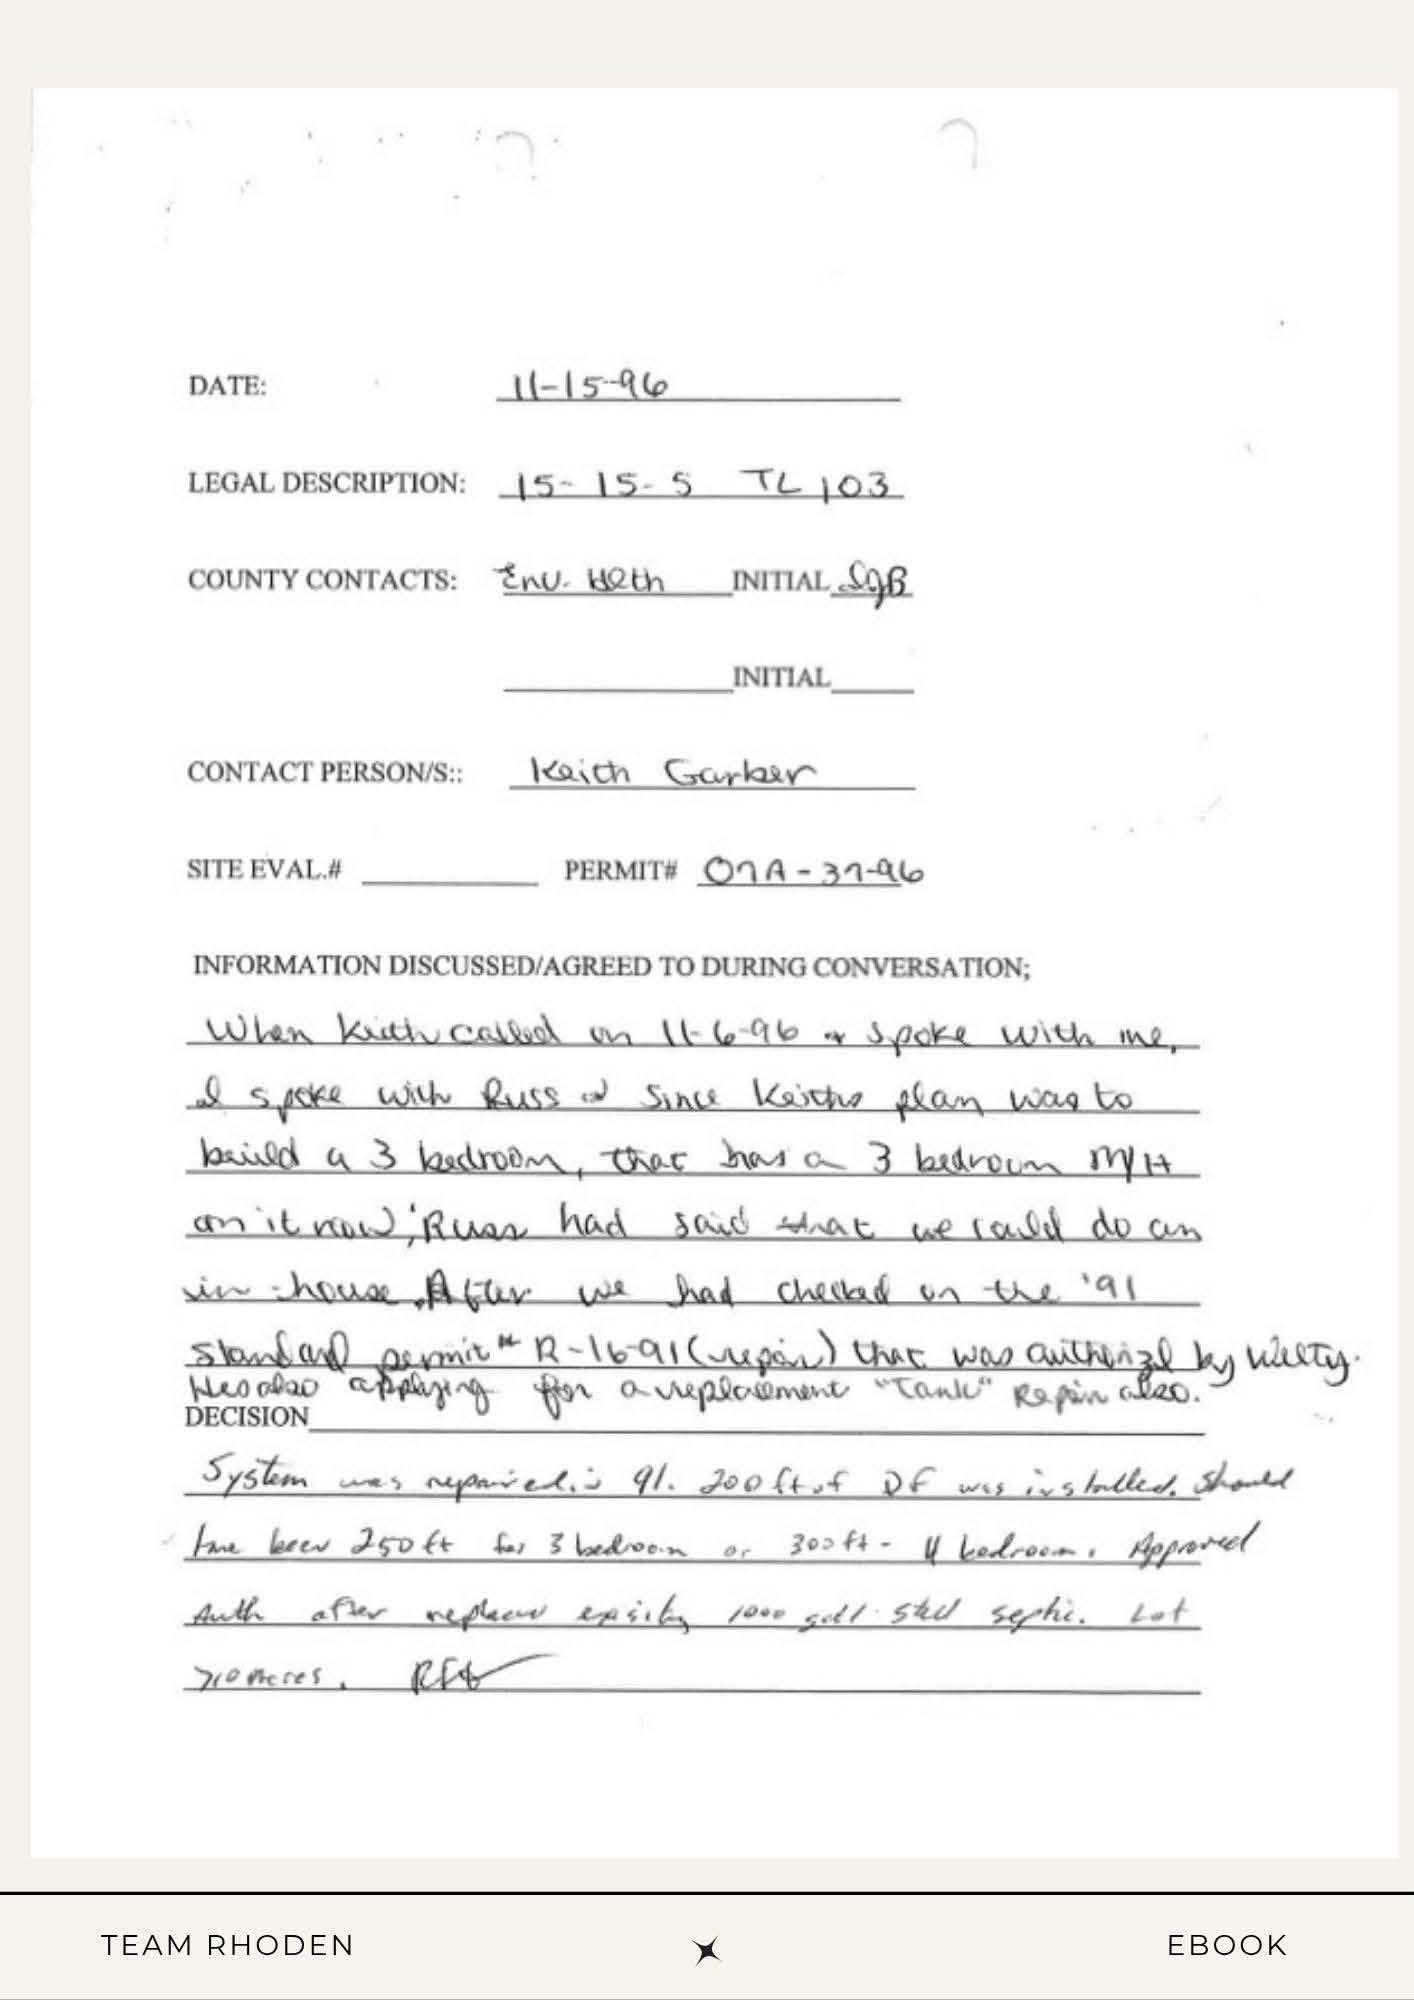 DATE: 11-15-96
LEGAL DESCRIPTION: 15- 15- 5 TL 103
COUNTY CONTACTS: Env. Hlth INITIAL SJB
INITIAL
CONTACT PERSON/S:: Keith Garber
SITE EVAL.# PERMIT# 07A-37-96
INFORMATION DISCUSSED/AGREED TO DURING CONVERSATION;
When Keith called on 11-6-96 + spoke with me,
I spoke with Russ Since Keiths plan was to
build a 3 bedroom, that has a 3 bedroom M/H
on it now; Russ had said that we could do an
in-house. After we had checked on the '91
standard permit # R-16-91 (repair) that was authorized by Wilty.
Hes also applying for a replacement "Tank" Repair also.
DECISION
System was repaired in 91. 200 ft of DF was installed. Should
have been 250 ft for 3 bedroom or 300 ft - 4 bedroom. Approved
Auth after replace existing 1000 gall. steel septic. Lot
>10 Acres.
TEAM RHODEN
EBOOK